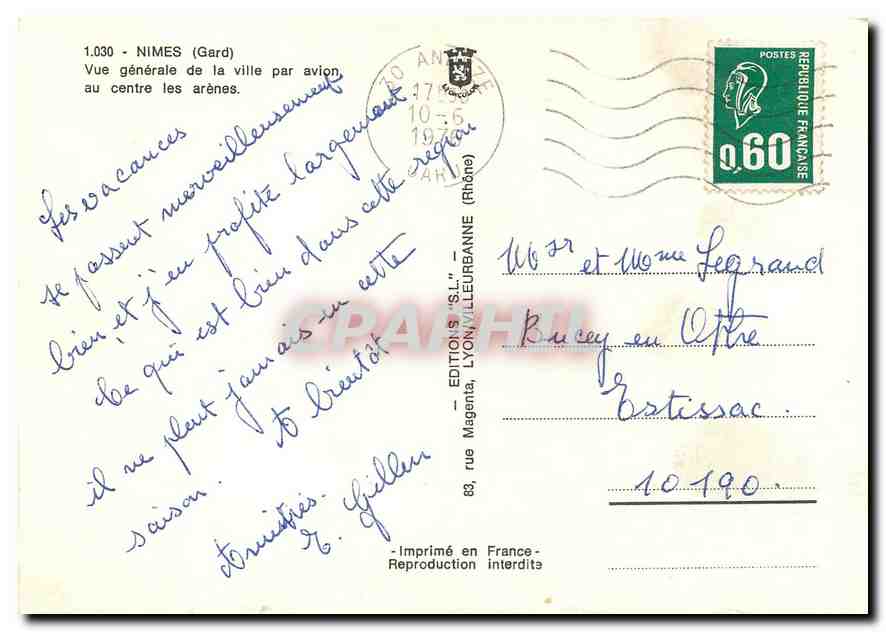 1.030 - NIMES (Gard)
Vue générale de la ville par avion,
au centre les arènes.
Les vacances
se passent merveilleusement
bien et j'en profite largement.
Ce qui est bien dans cette région
il ne pleut jamais en cette
saison. A bientôt
Amitiés.
30 AN ZE
17
10-6
GARD
LYONCOLOR
— EDITIONS "S.L." —
83, rue Magenta, LYON/VILLEURBANNE (Rhône)
POSTES
REPUBLIQUE FRANÇAISE
0,60
Msr et Mme Legrand
Bucey en Othe
Estissac.
10190.
- Imprimé en France -
Reproduction interdite
CPAPHIL